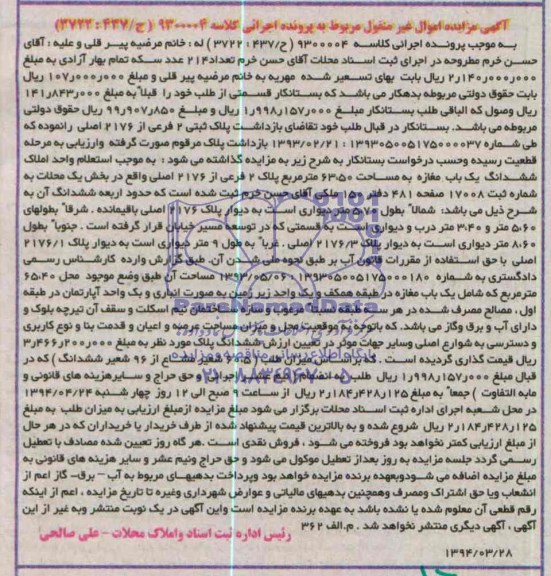 آگهی مزایده اموال غیر منقول مربوط به پرونده اجرائی کلاسه ۹۳۰۰۰۰۴ (ج/۴۳۷: ۳۷۲۲)
به موجب پرونده اجرائی کلاسه ۹۳۰۰۰۰۴ (ح/۴۳۷: ۳۷۲۲) له: خانم مرضیه پیر قلی و علیه: آقای
حسن خرم مطروحه در اجرای ثبت اسناد محلات آقای حسن خرم تعداد ۲۱۴ عدد سکه تمام بهار آزادی به مبلغ
۲٫۱۴۰٫۰۰۰٫۰۰۰ ریال بابت بهای تسعیر شده مهریه به خانم مرضیه پیر قلی و مبلغ ۱۰۷٫۰۰۰٫۰۰۰ ریال
بابت حقوق دولتی مربوطه بدهکار می باشد که بستانکار قسمتی از طلب خود را قبلا به مبلغ ۱۴۱٫۸۴۳٫۰۰۰
ریال وصول که الباقی طلب بستانکار مبلغ ۱٫۹۹۸٫۱۵۷٫۰۰۰ ریال و مبلغ ۹۹٫۹۰۷٫۸۵۰ ریال حقوق دولتی
مربوطه می باشد. بستانکار در قبال طلب خود تقاضای بازداشت پلاک ثبتی ۲ فرعی از ۲۱۷۶ اصلی را نموده که
طی شماره ۱۳۹۳۰۵۰۰۵۱۷۵۰۰۰۰۳۷: ۱۳۹۳/۰۲/۲۱ بازداشت پلاک مرقوم صورت گرفته وارزیابی به مرحله
قطعیت رسیده وحسب درخواست بستانکار به شرح زیر به مزایده گذاشته می شود: به موجب استعلام واحد املاک
ششدانگ یک باب مغازه به مساحت ۶۳،۵۰ مترمربع پلاک ۲ فرعی از ۲۱۷۶ اصلی واقع در بخش یک محلات به
شماره ثبت ۱۷۰۰۸ صفحه ۴۸۱ دفتر ۱۵۰ ملکی آقای حسن خرم ثبت شده است که حدود اربعه ششدانگ آن به
شرح ذیل می باشد: شمالاً بطول ۵،۷۰ متر دیواری است به دیوار پلاک ۲۱۷۶ اصلی باقیمانده . شرقاً بطولهای
۵،۶۰ متر و ۳،۴۰ متر درب و دیواری است به قسمتی که در توسعه مسیر خیابان قرار گرفته است . جنوباً بطول
۸،۶۰ متر دیواری است به دیوار پلاک ۲۱۷۶/۳ اصلی . غرباً به طول ۹ متر دیواری است به دیوار پلاک ۲۱۷۶/۱
اصلی با حق استفاده از مقررات قانون آب بر طبق نحوه ملی شدن آن. طبق گزارش وارده کارشناس رسمی
دادگستری به شماره ۱۳۹۳۰۵۰۰۵۱۷۵۰۰۰۱۸۰: ۱۳۹۳/۰۵/۰۶ مساحت آن طبق وضع موجود محل ۶۵،۴۰
مترمربع که شامل یک باب مغازه در طبقه همکف و یک واحد زیر زمین به صورت انباری و یک واحد آپارتمان در طبقه
اول ، مصالح مصرف شده در هر سه طبقه نسبتاً مرغوب و سازه ساختمان نیم اسکلت و سقف آن تیرچه بلوک و
دارای آب و برق وگاز می باشد. که باتوجه به موقعیت محل و میزان مساحت عرصه و اعیان و قدمت بنا و نوع کاربری
و دسترسی به شوارع اصلی وسایر جهات موثر در تعیین ارزش ششدانگ پلاک مورد نظر به مبلغ ۳٫۴۶۶٫۲۰۰٫۰۰۰
ریال قیمت گذاری گردیده است .
قبال مبلغ ۱٫۹۹۸٫۱۵۷٫۰۰۰ ریال طلب به انضمام
مابه التفاوت) جمعاً به مبلغ ۲٫۱۸۴٫۴۲۸٫۱۲۵ ریال از ساعت ۹ صبح الی ۱۲ روز چهار شنبه ۱۳۹۴/۰۴/۲۴
در محل شعبه اجرای اداره ثبت اسناد محلات برگزار می شود مبلغ مزایده ازمبلغ ارزیابی به میزان طلب به مبلغ
۲٫۱۸۴٫۴۲۸٫۱۲۵ ریال شروع شده و به بالاترین قیمت پیشنهاد شده از طرف خریدار یا خریداران که در هر حال
از مبلغ ارزیابی کمتر نخواهد بود فروخته می شود ، فروش نقدی است .هر گاه روز تعیین شده مصادف با تعطیل
رسمی گردد جلسه مزایده به روز بعداز تعطیل موکول می شود و حق حراج ونیم عشر و سایر هزینه های قانونی به
مبلغ مزایده اضافه می شودوبعهده برنده مزایده خواهد بود وپرداخت بدهیهای مربوط به آب – برق– گاز اعم از
انشعاب ویا حق اشتراک ومصرف وهمچنین بدهیهای مالیاتی و عوارض شهرداری وغیره تا تاریخ مزایده ، اعم از اینکه
رقم قطعی آن معلوم شده یا نشده باشد به عهده برنده مزایده است واین آگهی در یک نوبت منتشر وبه غیر از این
آگهی ، آگهی دیگری منتشر نخواهد شد . م.الف ۳۶۲
رئیس اداره ثبت اسناد واملاک محلات - علی صالحی
۱۳۹۴/۰۳/۲۸